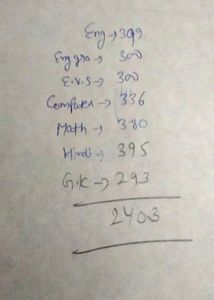 Eng → 399
Eng gra → 300
E.V.S → 300
Computer → 336
Math → 380
Hindi → 395
G.K → 293
2403